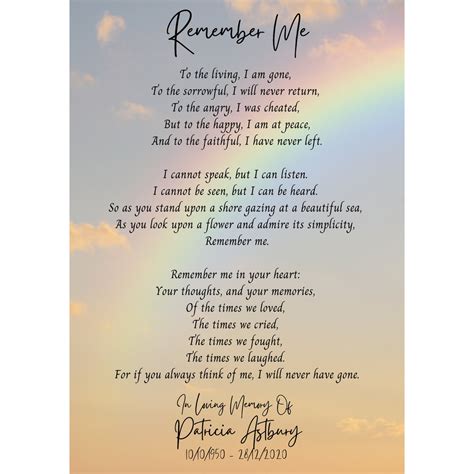 Remember Me
To the living, I am gone,
To the sorrowful, I will never return,
To the angry, I was cheated,
But to the happy, I am at peace,
And to the faithful, I have never left.
I cannot speak, but I can listen.
I cannot be seen, but I can be heard.
So as you stand upon a shore gazing at a beautiful sea,
As you look upon a flower and admire its simplicity,
Remember me.
Remember me in your heart:
Your thoughts, and your memories,
Of the times we loved,
The times we cried,
The times we fought,
The times we laughed.
For if you always think of me, I will never have gone.
In Loving Memory Of
Patricia Astbury
10/10/1950 - 28/12/2020